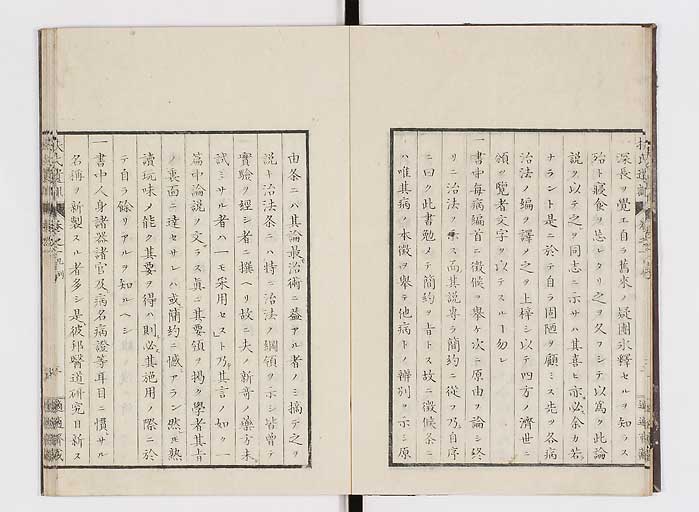 深長ヲ覺エ自ラ舊來ノ疑團氷釋セルヲ知ラス
殆ト寢食ヲ忘レタリ之ヲ久フシテ以爲ク此論
説ヲ以テ之ヲ同志ニ示サハ其喜ヒ亦必余カ若
ナラント是ニ於テ自ラ固陋ヲ顧ミス先ツ各病
治法ノ編ヲ譯シ之ヲ上梓シ以テ四方ノ濟世ニ
領ツ覽者文字ヲ以テスルー勿レ
一書中毎病編首ニ徴候ヲ擧ケ次ニ原由ヲ論シ終
リニ治法ヲ示ス而其説專ラ簡約ニ從フ乃自序
ニ曰ク此書勉メテ簡約ヲ旨トス故ニ徴候条ニ
ハ唯其病ノ本徴ヲ擧テ他病トノ辨別ヲ示シ原
由条ニハ其論最治術ニ益アル者ノミ摘テ之ヲ
説キ治法条ニハ特ニ治法ノ綱領ヲ示シ皆曽テ
實驗ヲ經シ者ニ撰ヘリ故ニ夫ノ新奇ノ藥方未
試ミサル者ハ一モ采用セスト乃其言ノ如ク一
篇中論説ノ文ラス眞ニ其要領ヲ掲ク學者其旨
ノ裏面ニ達セサレハ或簡約ニ憾アラン然モ熟
讀玩味ノ能ク其要ヲ得ハ則必其施用ノ際ニ於
テ自ラ餘リアルヲ知ルヘシ
一書中人身諸器諸官及病名病證等耳目ニ慣サル
名稱ヲ新製スル者多シ是彼邦醫道研究日新ス